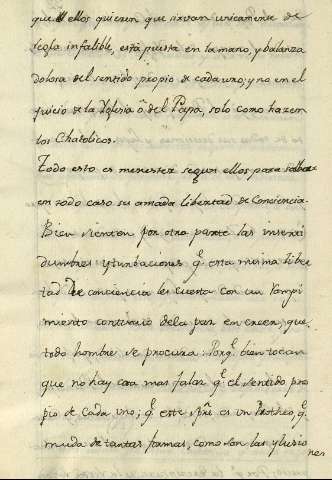 que ellos quieren que sirvan unicamente de
regla infalible, está puesta en la mano, y balanza
dolosa del sentido propio de cada uno, y no en el
juicio de la Yglesia ô del Papa, solo como hazem
los Chatolicos.
Todo esto es menester segun ellos para salbar
em todo caso su amada libertad de Conciencia.
Bien sienten por otra parte las inserti
dumbres y turbaciones q̃ esta misma liber
tad de conciencia les cuesta con un
contrario de la paz em creer, que
todo hombre se procura. Porq̃ bien tocan
que no hay cosa mas falaz q̃ el sentido pro
pio de Cada uno; q̃ este spr̃e es un Protheo, q̃
muda de tantas formas, como son las ylusio
nes